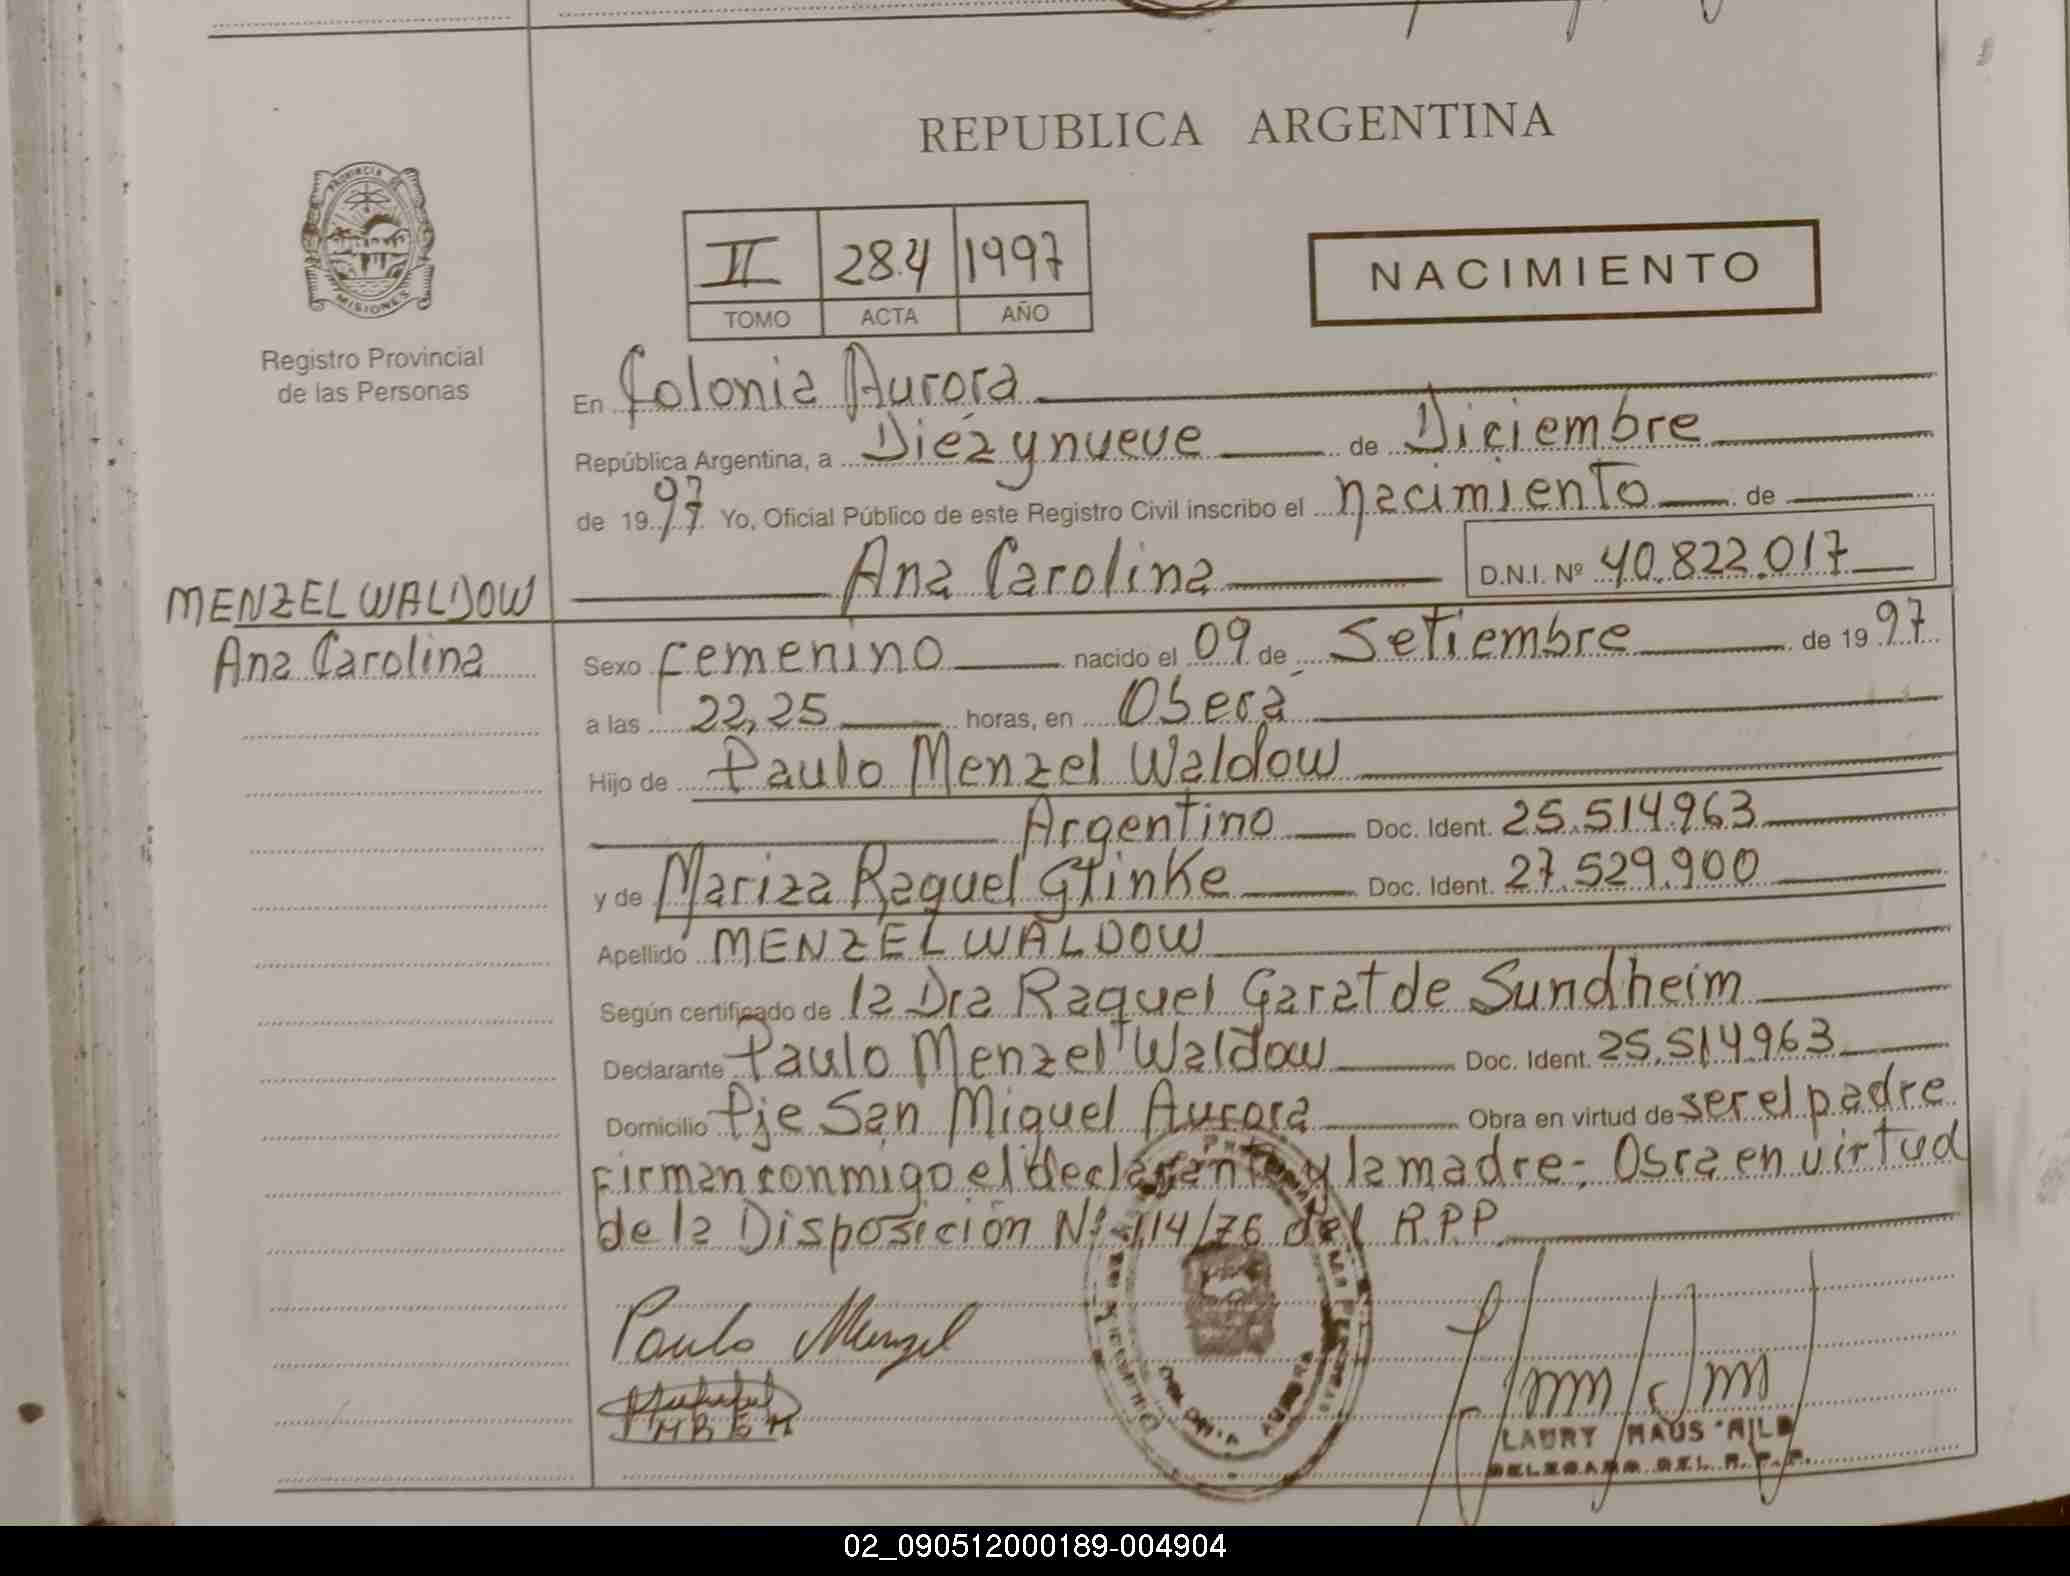 REPUBLICA ARGENTINA
PROVINCIA DE
MISIONES
Registro Provincial
de las Personas
II 284 1997
TOMO ACTA AÑO
NACIMIENTO
En Colonia Aurora
República Argentina, a Diez y nueve de Diciembre
de 19 97 Yo, Oficial Público de este Registro Civil inscribo el nacimiento de
Ana Carolina D.N.I. Nº 40.822.017
MENZEL WALDOW
Ana Carolina
Sexo Femenino nacido el 09 de Setiembre de 19 97
a las 22,25 horas, en Oberá
Hijo de Paulo Menzel Waldow
Argentino Doc. Ident. 25.514.963
y de Mariza Raquel Glinke Doc. Ident. 27.529.900
Apellido MENZEL WALDOW
Según certificado de la Dra Raquel Garat de Sundheim
Declarante Paulo Menzel Waldow Doc. Ident. 25.514.963
Domicilio Pje San Miguel Aurora Obra en virtud de ser el padre
Firman conmigo el declarante y la madre; Obra en virtud
de la Disposición Nº 114/76 del R.P.P.
Paulo Menzel
COLONIA AURORA
LAURY HAUS HILD
DELEGADO DEL R.P.P.
02_090512000189-004904